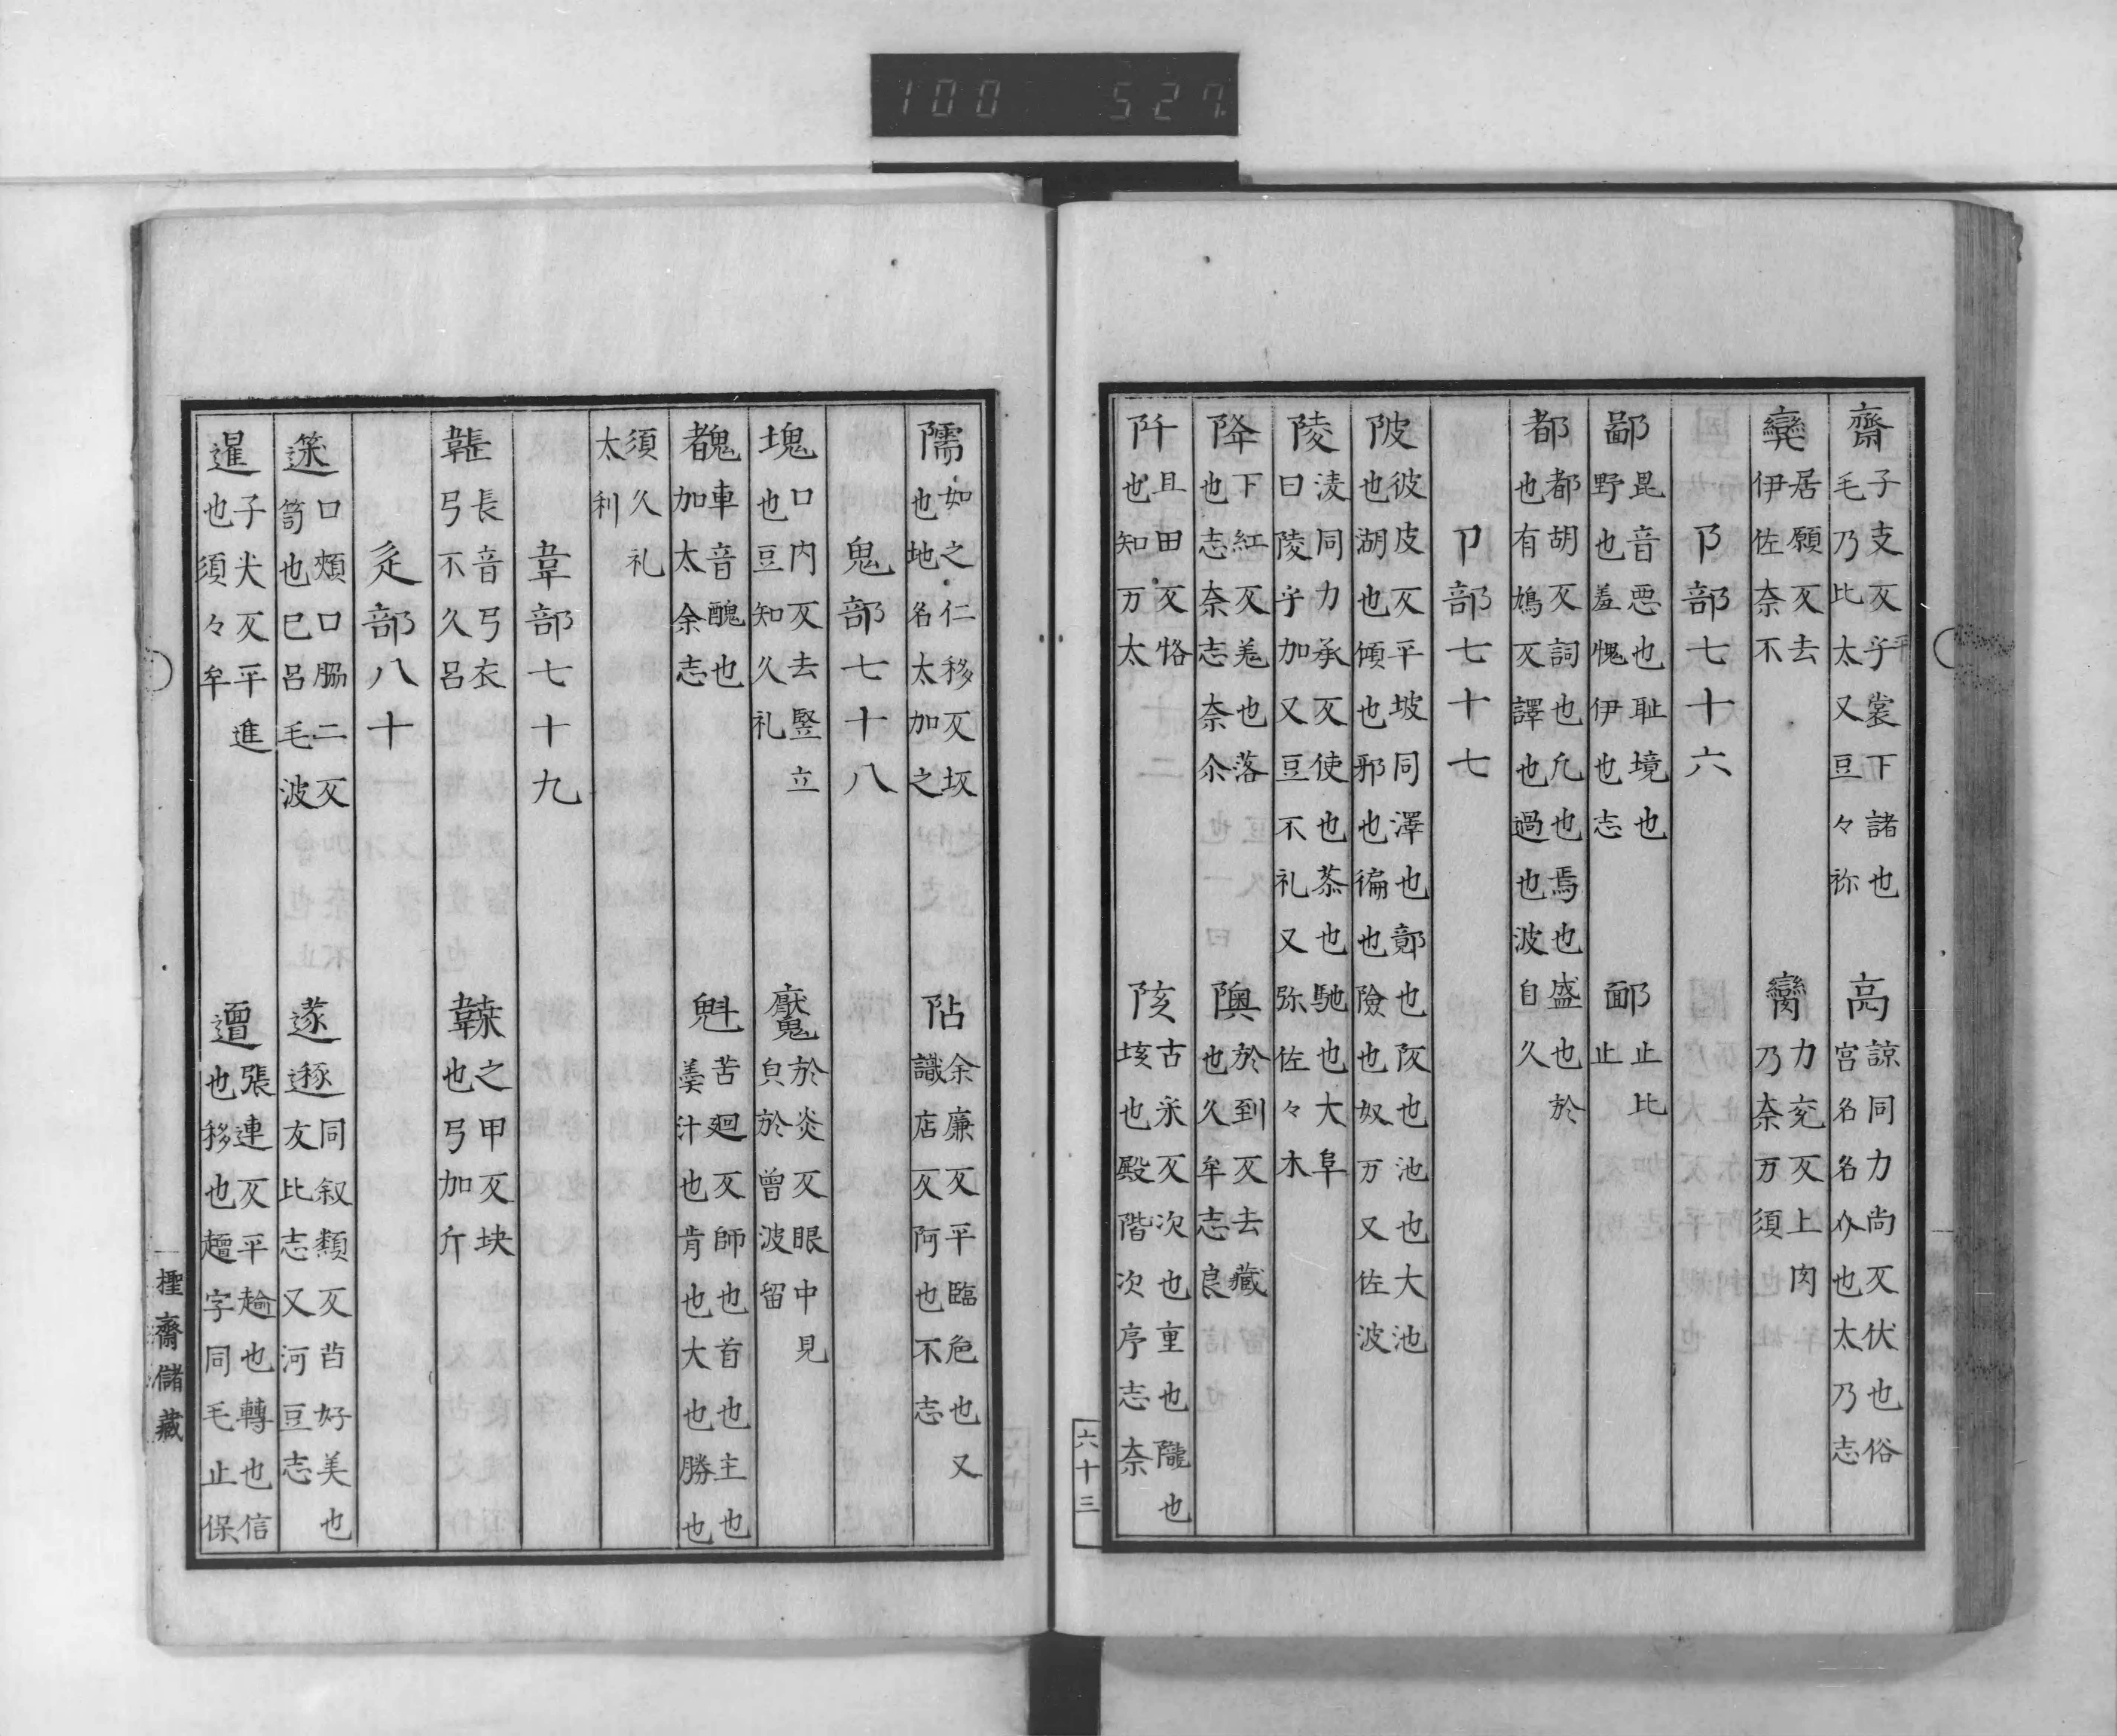 100 527
齋子支反平裳下諸也毛乃比太乎又豆々祢 高諒同力尚反伏也俗宮名名介也太乃志
居願反去伊佐奈不 臠力兖反上肉乃奈万須
阝部七十六
鄙毘音悪也耻境也野也羞愧伊也志 郿止比止
都都胡反詞也凡也焉也盛也於也有鳩反譯也過也也波自久
卩部七十七
陂彼皮反平坡同澤也鄣也阪也池也大池也湖也傾也邪也徧也險也奴万又佐波
陵淩同力承反使也忝也馳也大阜曰陵乎加又豆不礼又弥佐々木
降下紅反羗也落也志奈志奈尒 隩於到反去藏也久牟志良
阡且田反恪也知万太 陔古来反次也重也隴也垓也殿階次序志奈
六十三
隭如之仁移反坂也地名太加之 阽余廉反平臨危也又識店反阿也不志
鬼部七十八
塊口内反去竪立也豆知久礼 魘於炎反眼中見㒵於曽波留
車音醜也加太余志 魁苦廻反師也首也主也羹汁也肯也大也勝也
須久礼太利
韋部七十九
韔長音弓衣弓不久呂 韎之甲反块也弓加斤
辵部八十
口頰口脇二反笥也巳呂毛波 遂遯同叙類反苩好美也友比志又河豆志
暹子尖反平進也須々牟 邅張連反平䠾也轉也信也移也趲字同毛止保
㮄齋儲藏